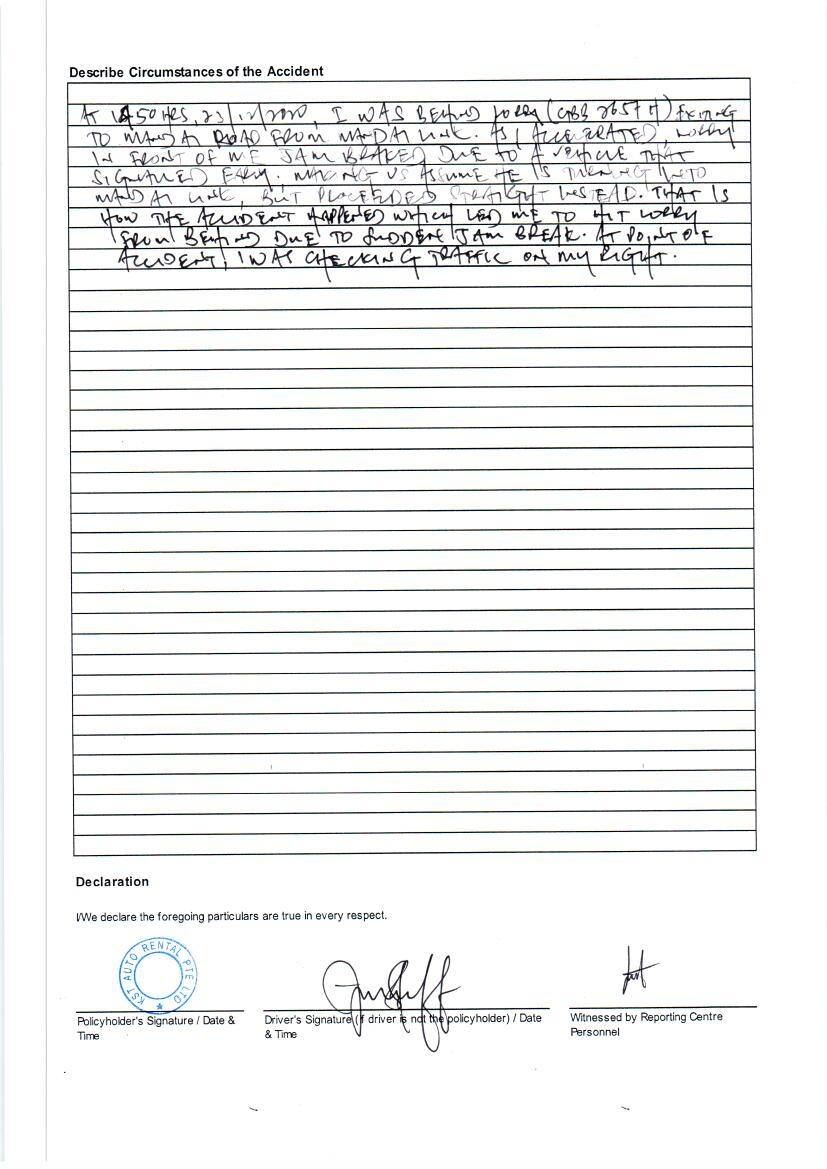 Describe Circumstances of the Accident
AT 1450 HRS, 23/12/2020, I WAS BEHIND LORRY (GBB 2657 H) EXITING
TO MANDAI ROAD FROM MANDAI LINK. AS I ACCELERATED, LORRY
IN FRONT OF ME JAM BRAKED DUE TO A VEHICLE THAT
SIGNALLED EARLY. MAKING US ASSUME HE IS TURNING INTO
MANDAI LINK, BUT PROCEEDED STRAIGHT INSTEAD. THAT IS
HOW THE ACCIDENT HAPPENED WHICH LED ME TO HIT LORRY
FROM BEHIND DUE TO SUDDEN JAM BREAK. AT POINT OF
ACCIDENT, I WAS CHECKING TRAFFIC ON MY RIGHT.
Declaration
I/We declare the foregoing particulars are true in every respect.
KST AUTO RENTAL PTE LTD
Policyholder's Signature / Date &
Time
Driver's Signature (if driver is not the policyholder) / Date
& Time
Witnessed by Reporting Centre
Personnel